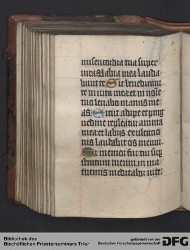 misericordia tua super
vitas labia mea lauda
bunt te Sic benedicam
te in vita mea et in noi
tuo leuabo manus meas
Sicut adipe et pingue
dine repleatur anima
mea et labiis exultationis
laudabit os meum
Si memor fui tui super
stratum meum in ma
tutinis meditabor in te
Bibliothek des
Bischöflichen Priesterseminars Trier
gefördert von der
Deutschen Forschungsgemeinschaft
DFG